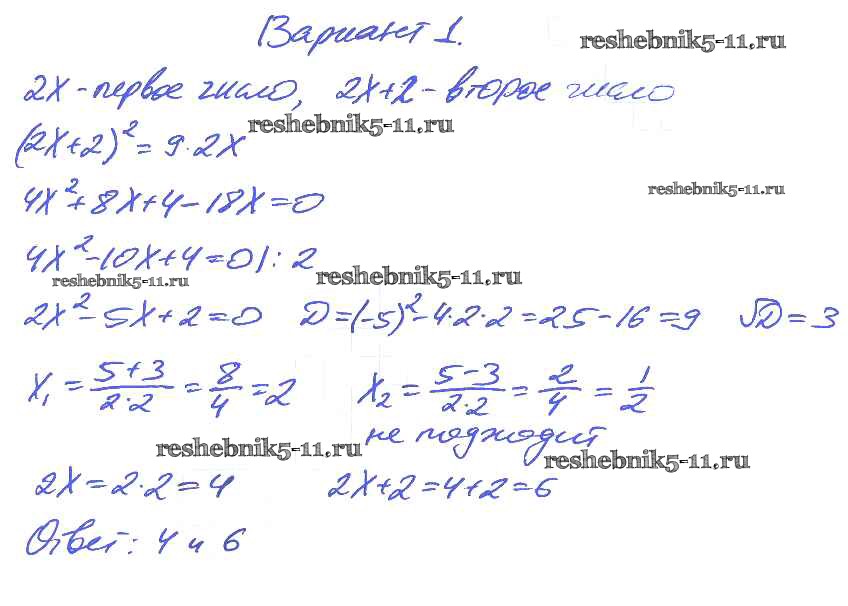 Вариант 1.
reshebnik5-11.ru
2x - первое число, 2x+2 - второе число
reshebnik5-11.ru
(2x+2)² = 9·2x
reshebnik5-11.ru
4x² + 8x + 4 - 18x = 0
4x² - 10x + 4 = 0 | : 2
reshebnik5-11.ru
reshebnik5-11.ru
2x² - 5x + 2 = 0 D = (-5)² - 4·2·2 = 25 - 16 = 9 √D = 3
x₁ = (5+3)/(2·2) = 8/4 = 2 x₂ = (5-3)/(2·2) = 2/4 = 1/2
не подходит
reshebnik5-11.ru
reshebnik5-11.ru
2x = 2·2 = 4 2x+2 = 4+2 = 6
Ответ: 4 и 6